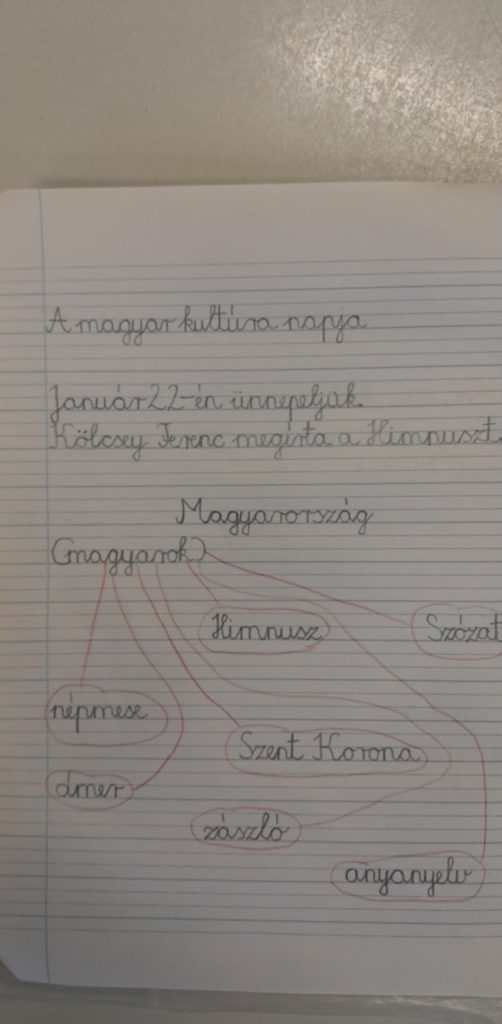 A magyar kultúra napja
Január 22-én ünnepeljük.
Kölcsey Ferenc megírta a Himnuszt.
Magyarország
(magyarok)
Himnusz
Szózat
népmese
Szent Korona
címer
zászló
anyanyelv